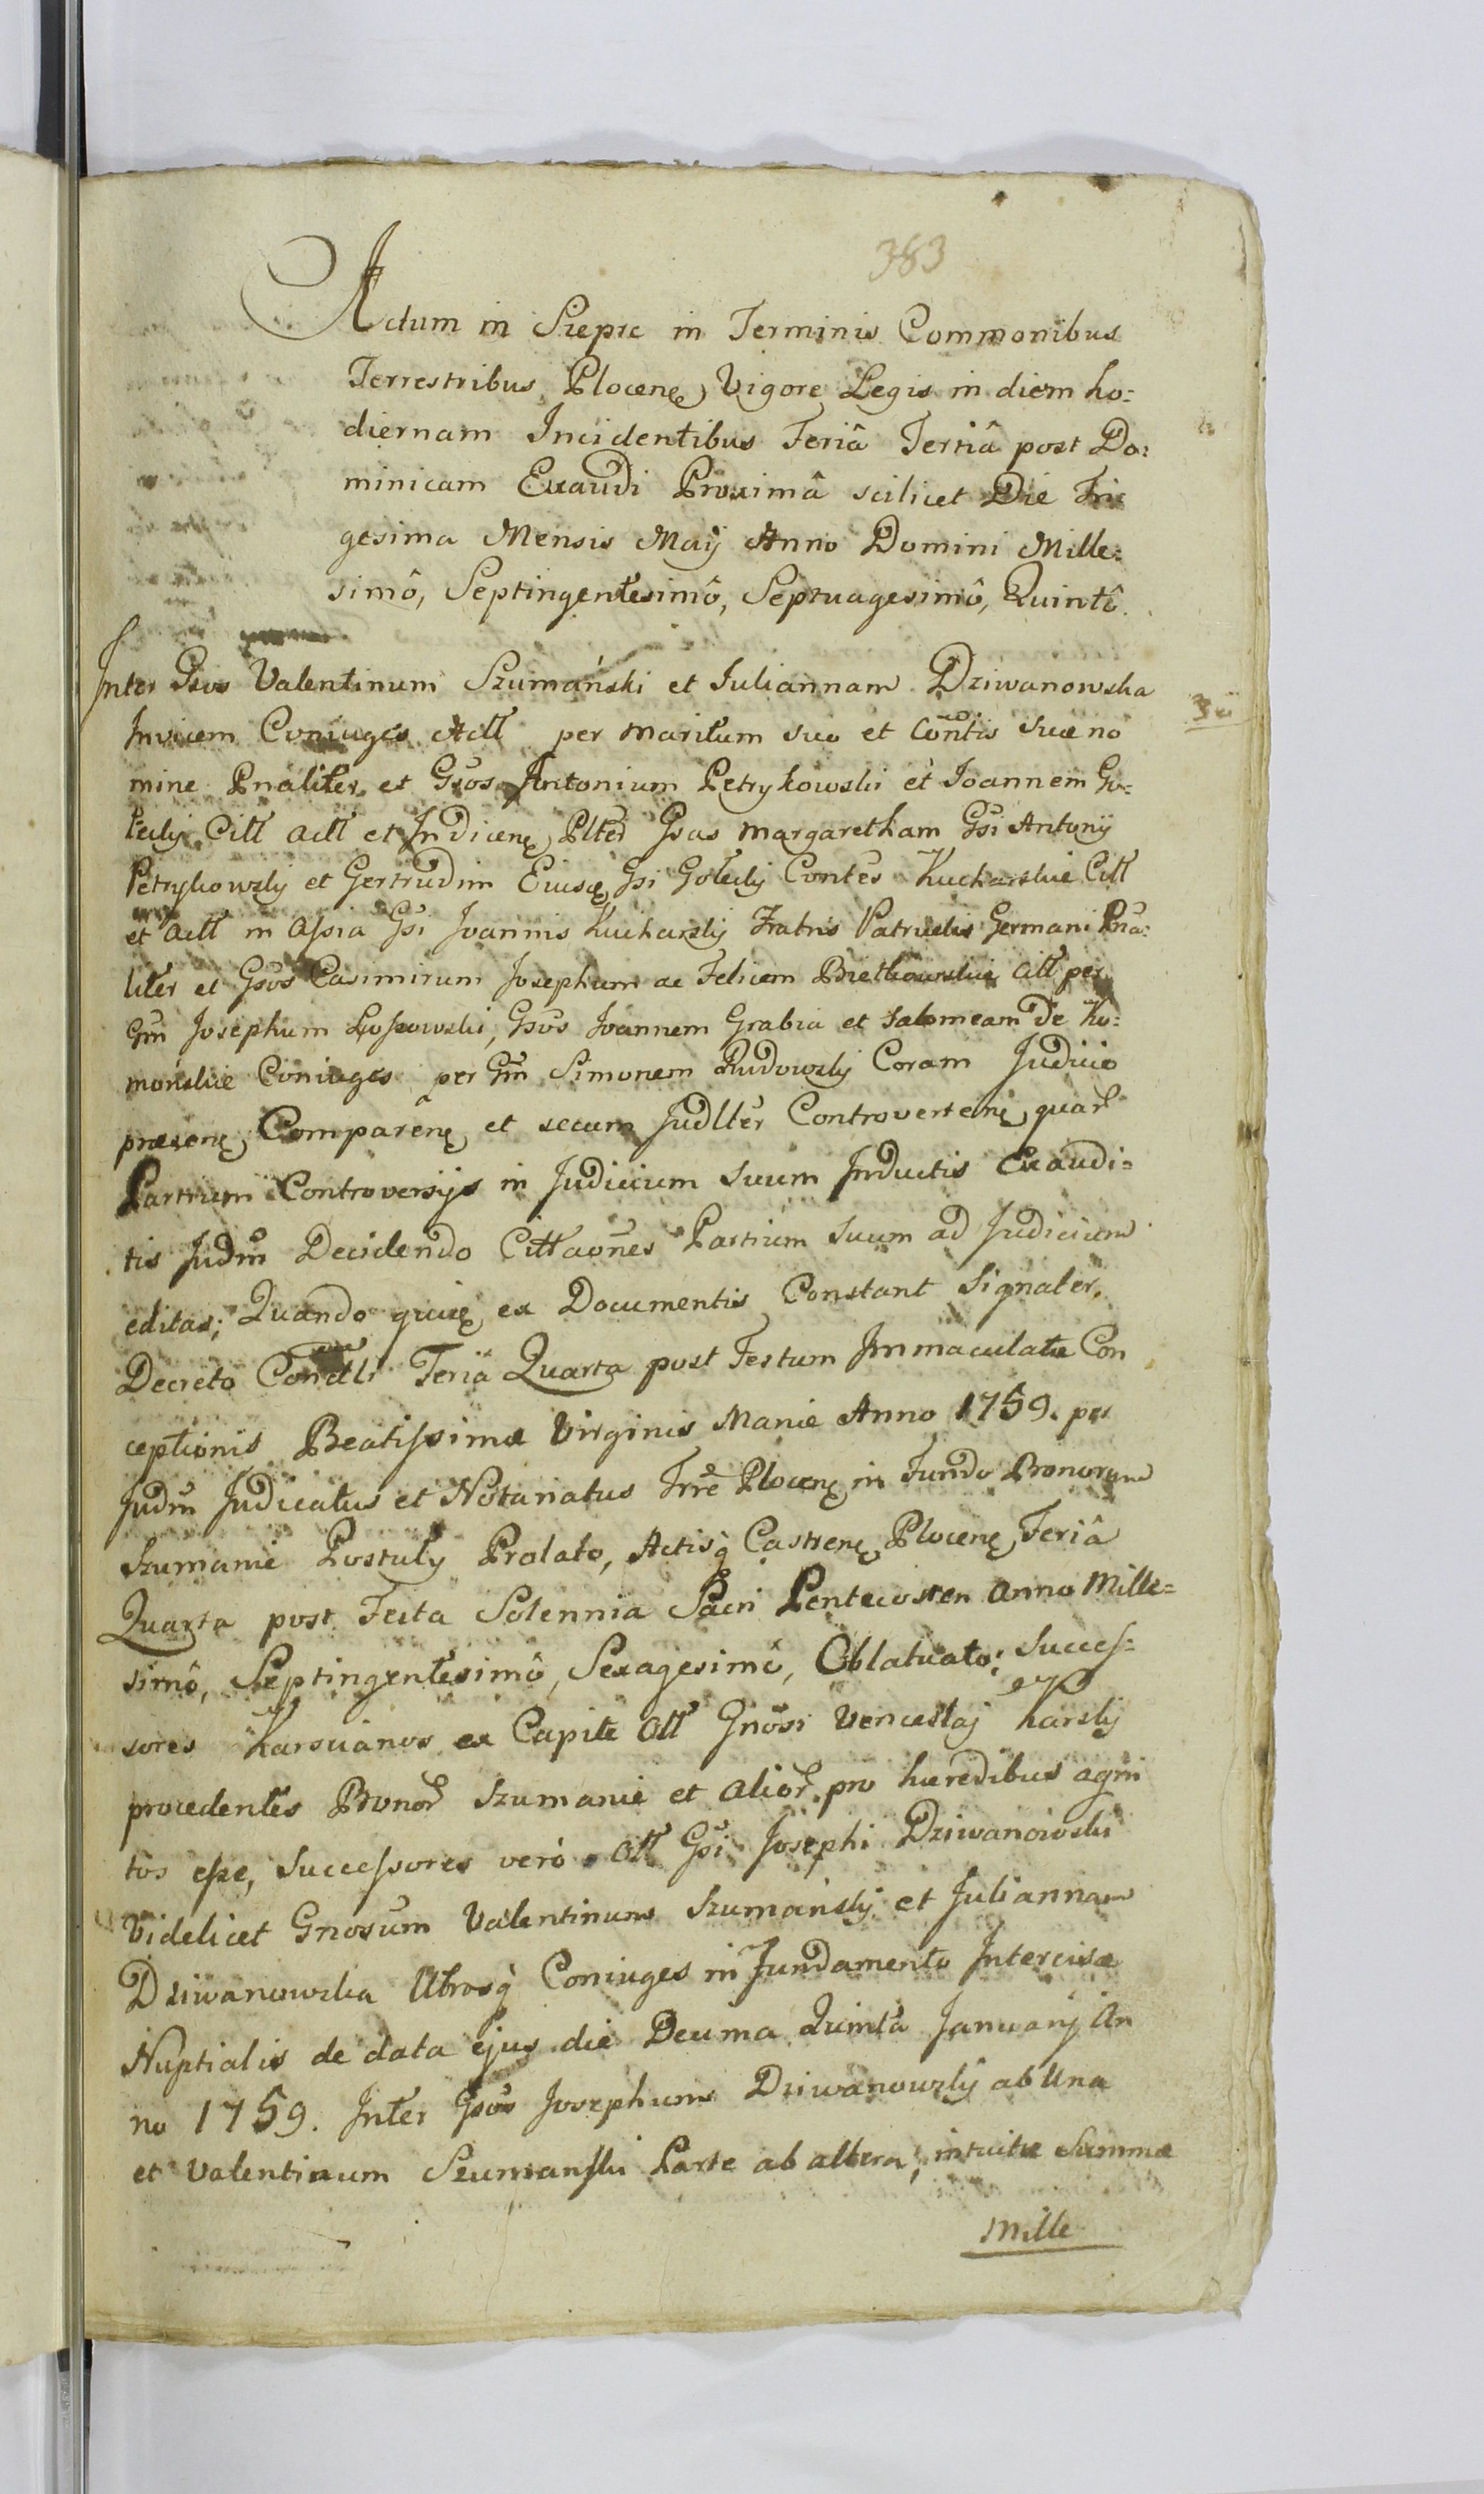 383
Actum in Sieprc in Terminis Commonibus
Terrestribus Plocenę Vigore Legis in diem ho=
diernam Incidentibus Feriâ Tertiâ post Do=
minicam Exaudi Proximâ scilicet Die Tri
gesima Mensis Maij Anno Domini Mille=
simô, Septingentesimô, Septuagesimô, Quintô.
Inter Gsos Valentinum Szumański et Juliannam Dziwanowska
Invicem Coniuges Actt per Maritum suo et Cöntis suæ no
mine Pnaliter et Gsos Antonium Petrykowski et Joannem Go=
łecky Citt actt et Indicenę Plter Gsas Margaretham Gsi Antonij
Petrykowsky et Gertrudim Eiusdę Gsi Gołecky Contes Kucharskie Citt
et actt in Assia Gsi Joannis Kucharsky Fratris Patruelis Germani Pna=
liter et Gsos Casimirum Josephum ac Felicem Bietkowskie citt per
Gm Josephum Łossowski, Gsos Joannem Grabia et Salomeam De Ko=
mońskie Coniuges per Gm Simonem Rudowsky Coram Judicio
præsenę Comparenę et secum Judlter Controvertenę quar
Partium Controversijs in Judicium suum Inductis Exaudi=
tis Judm Decidendo Cittaones Partium suum ad Judicium
editas; Quando quidę ex Documentis Constant signater,
Decreto Condli Feriâ Quarta post Festum Immaculatæ Con
ceptionis Beatissimæ Virginis Mariæ Anno 1759. per
Judm Judicatus et Notariatus Trre Plocenę in Fundo Bonorum
Szumanie Pustuly Prolato, Actisq Castrenę Plocenę Feriâ
Quarta post Festa Solennia Sacri Pentecosten Anno Mille=
simô, Septingentesimô, Sexagesimô, Oblatuato; Succes=
sores Karsvianos ex Capite Ott Gnosi Venceslaj Karsky
procedentes Bonor Szumanie et alior pro hæredibus agni
tos esse, Successores verò Ott Gsi Josephi Dziwanowski
Videlicet Gnosum Valentinum Szumański et Juliannam
Dziwanowska Utrosq Coniuges in Fundamento Intercisæ
Nuptialis de data ejus die Decima Quinta Januarij An
no 1759. Inter Gsos Josephum Dziwanowsky ab Una
et Valentinum Szumanski Parte ab altera, intuitu Summæ
Mille